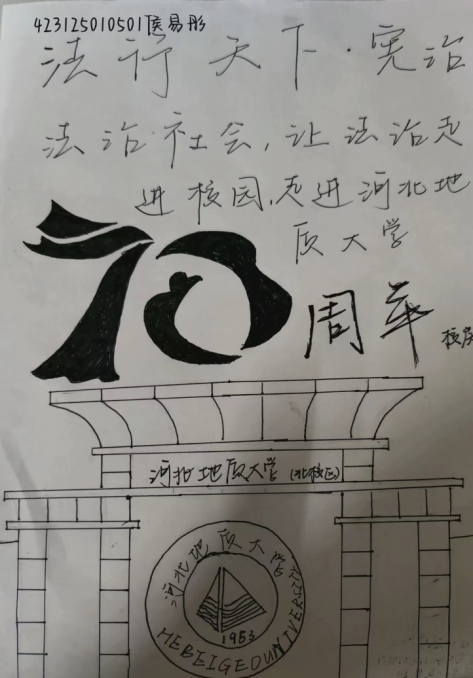 423125010501侯易彤
法行天下·宪治
法治社会,让法治走
进校园,走进河北地
质大学
70
周年
校庆
河北地质大学(北校区)
河北地质大学
1953
HEBEIGEOUNIVERSITY